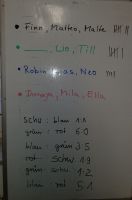 Finn, Matteo, Malte
Lio, Till
Robin, Jonas, Neo
Mila, Ella
schw : blau 1:6
grün : rot 6:0
blau : grün 3:5
rot : schw 1:9
grün : schw 1:2
blau : rot 5:1